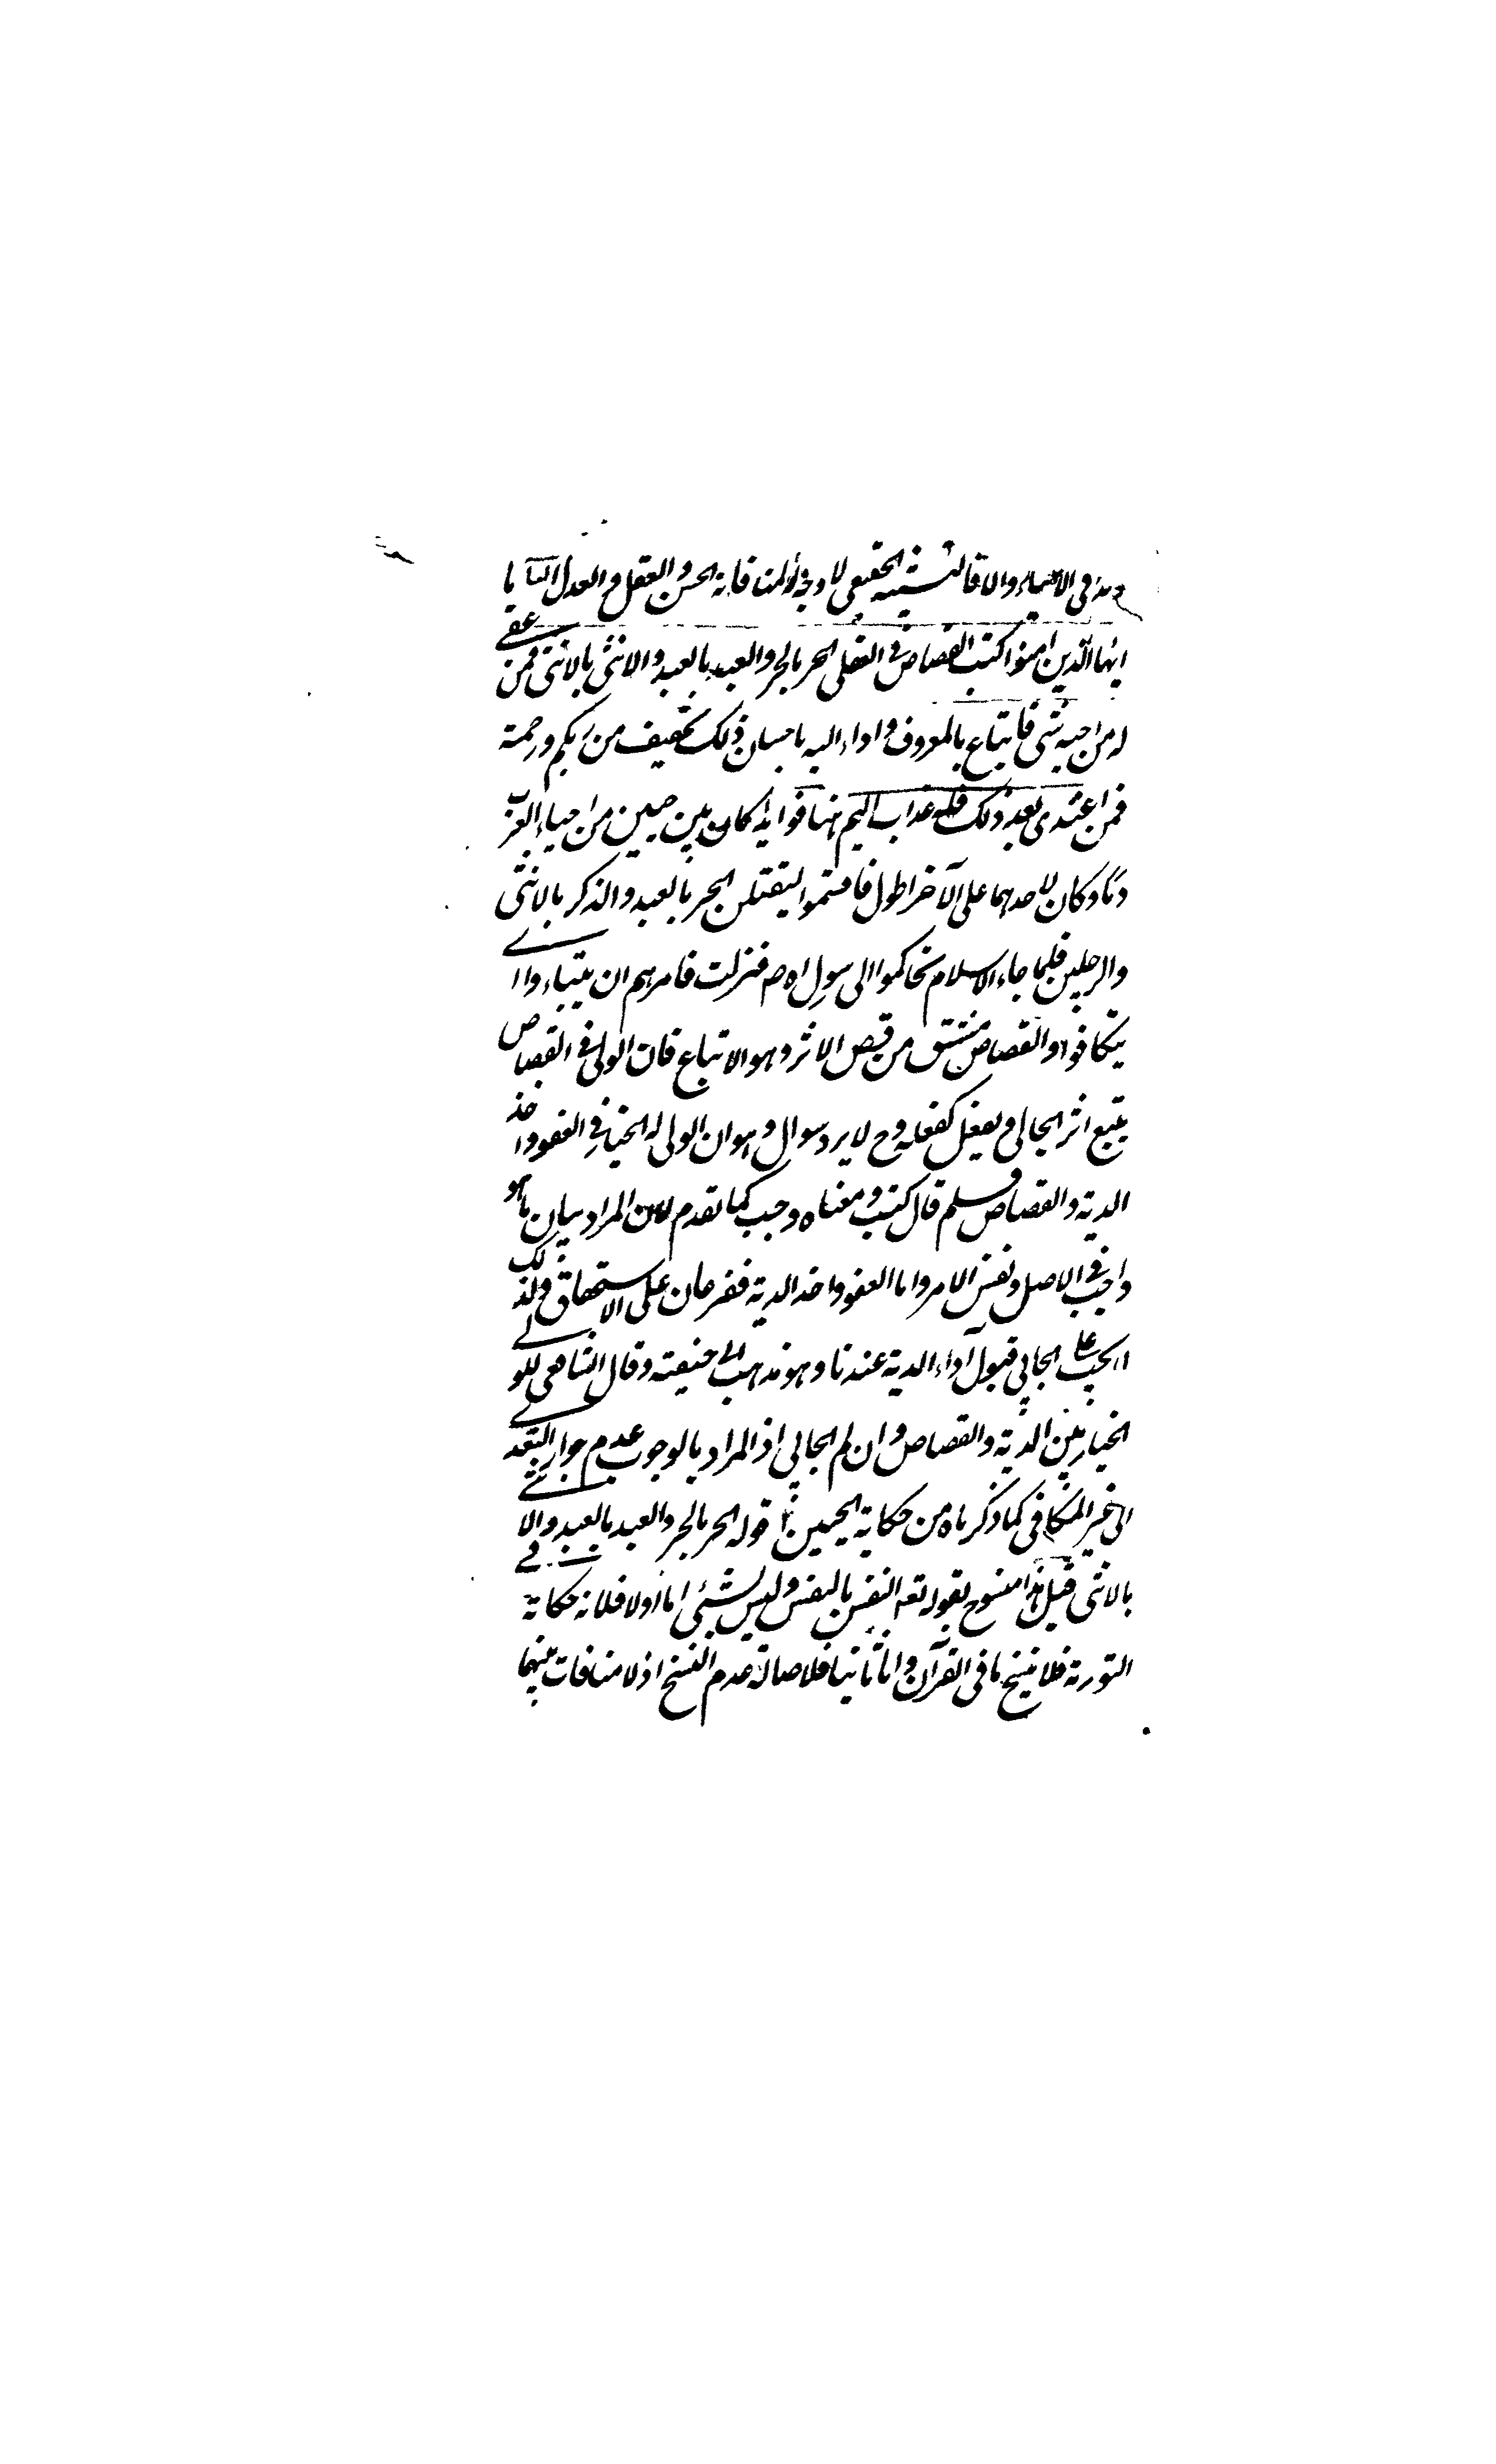 وهذا في الاحياء والا فالتشبيه الحقيقي لا وجه له لمنافاته الحسن والعقل والعدل الثانية يا
ايها الذين امنوا كتب القصاص في القتلى الحر بالحر والعبد بالعبد والانثى بالانثى فمن عفى
له من اخيه شئ فاتباع بالمعروف واداء اليه باحسان ذلك تخفيف من ربكم ورحمة
فمن اعتدى بعد ذلك فله عذاب اليم هنا فوايد ا كان بين حيين من احياء العرب
دماء وكان لاحدهما على الآخر طول فاقسموا ليقتلن الحر بالعبد والذكر بالانثى
والرجلين فلما جاء الاسلام تحاكموا الى رسول اه ص فنزلت فامرهم ان يتباءوا ا
يتكافوا ب والقصاص مشتق من قص الاثر وهو الاتباع فان الولي في القصاص
يتبع اثر الجاني ويفعل كفعله وح لا يرد سوال وهو ان الولي له الخيار في العفو واخذ
الدية والقصاص فلم قال كتب ومعناه وجب كما تقدم لان المراد بيان ما هو
واجب في الاصل ونفس الامر واما العفو واخذ الدية ففرعان على الاستحقاق ولذلك
لا يجب على الجاني قبول اداء الدية عندنا وهو مذهب ابي حنيفة وقال الشافعي للولي
الخيار بين الدية والقصاص وان لم الجاني اذ المراد بالوجوب عدم جواز التعدي
الى غير المكافي كما ذكرناه من حكاية الحيين قوله الحر بالحر والعبد بالعبد والانثى
بالانثى قيل هذا منسوخ بقوله تع النفس بالنفس وليس بشئ اما اولا فلانه حكاية
التورية فلا ينسخ ما في القرآن واما ثانيا فلاصالة عدم النسخ اذ لا منافات بينهما